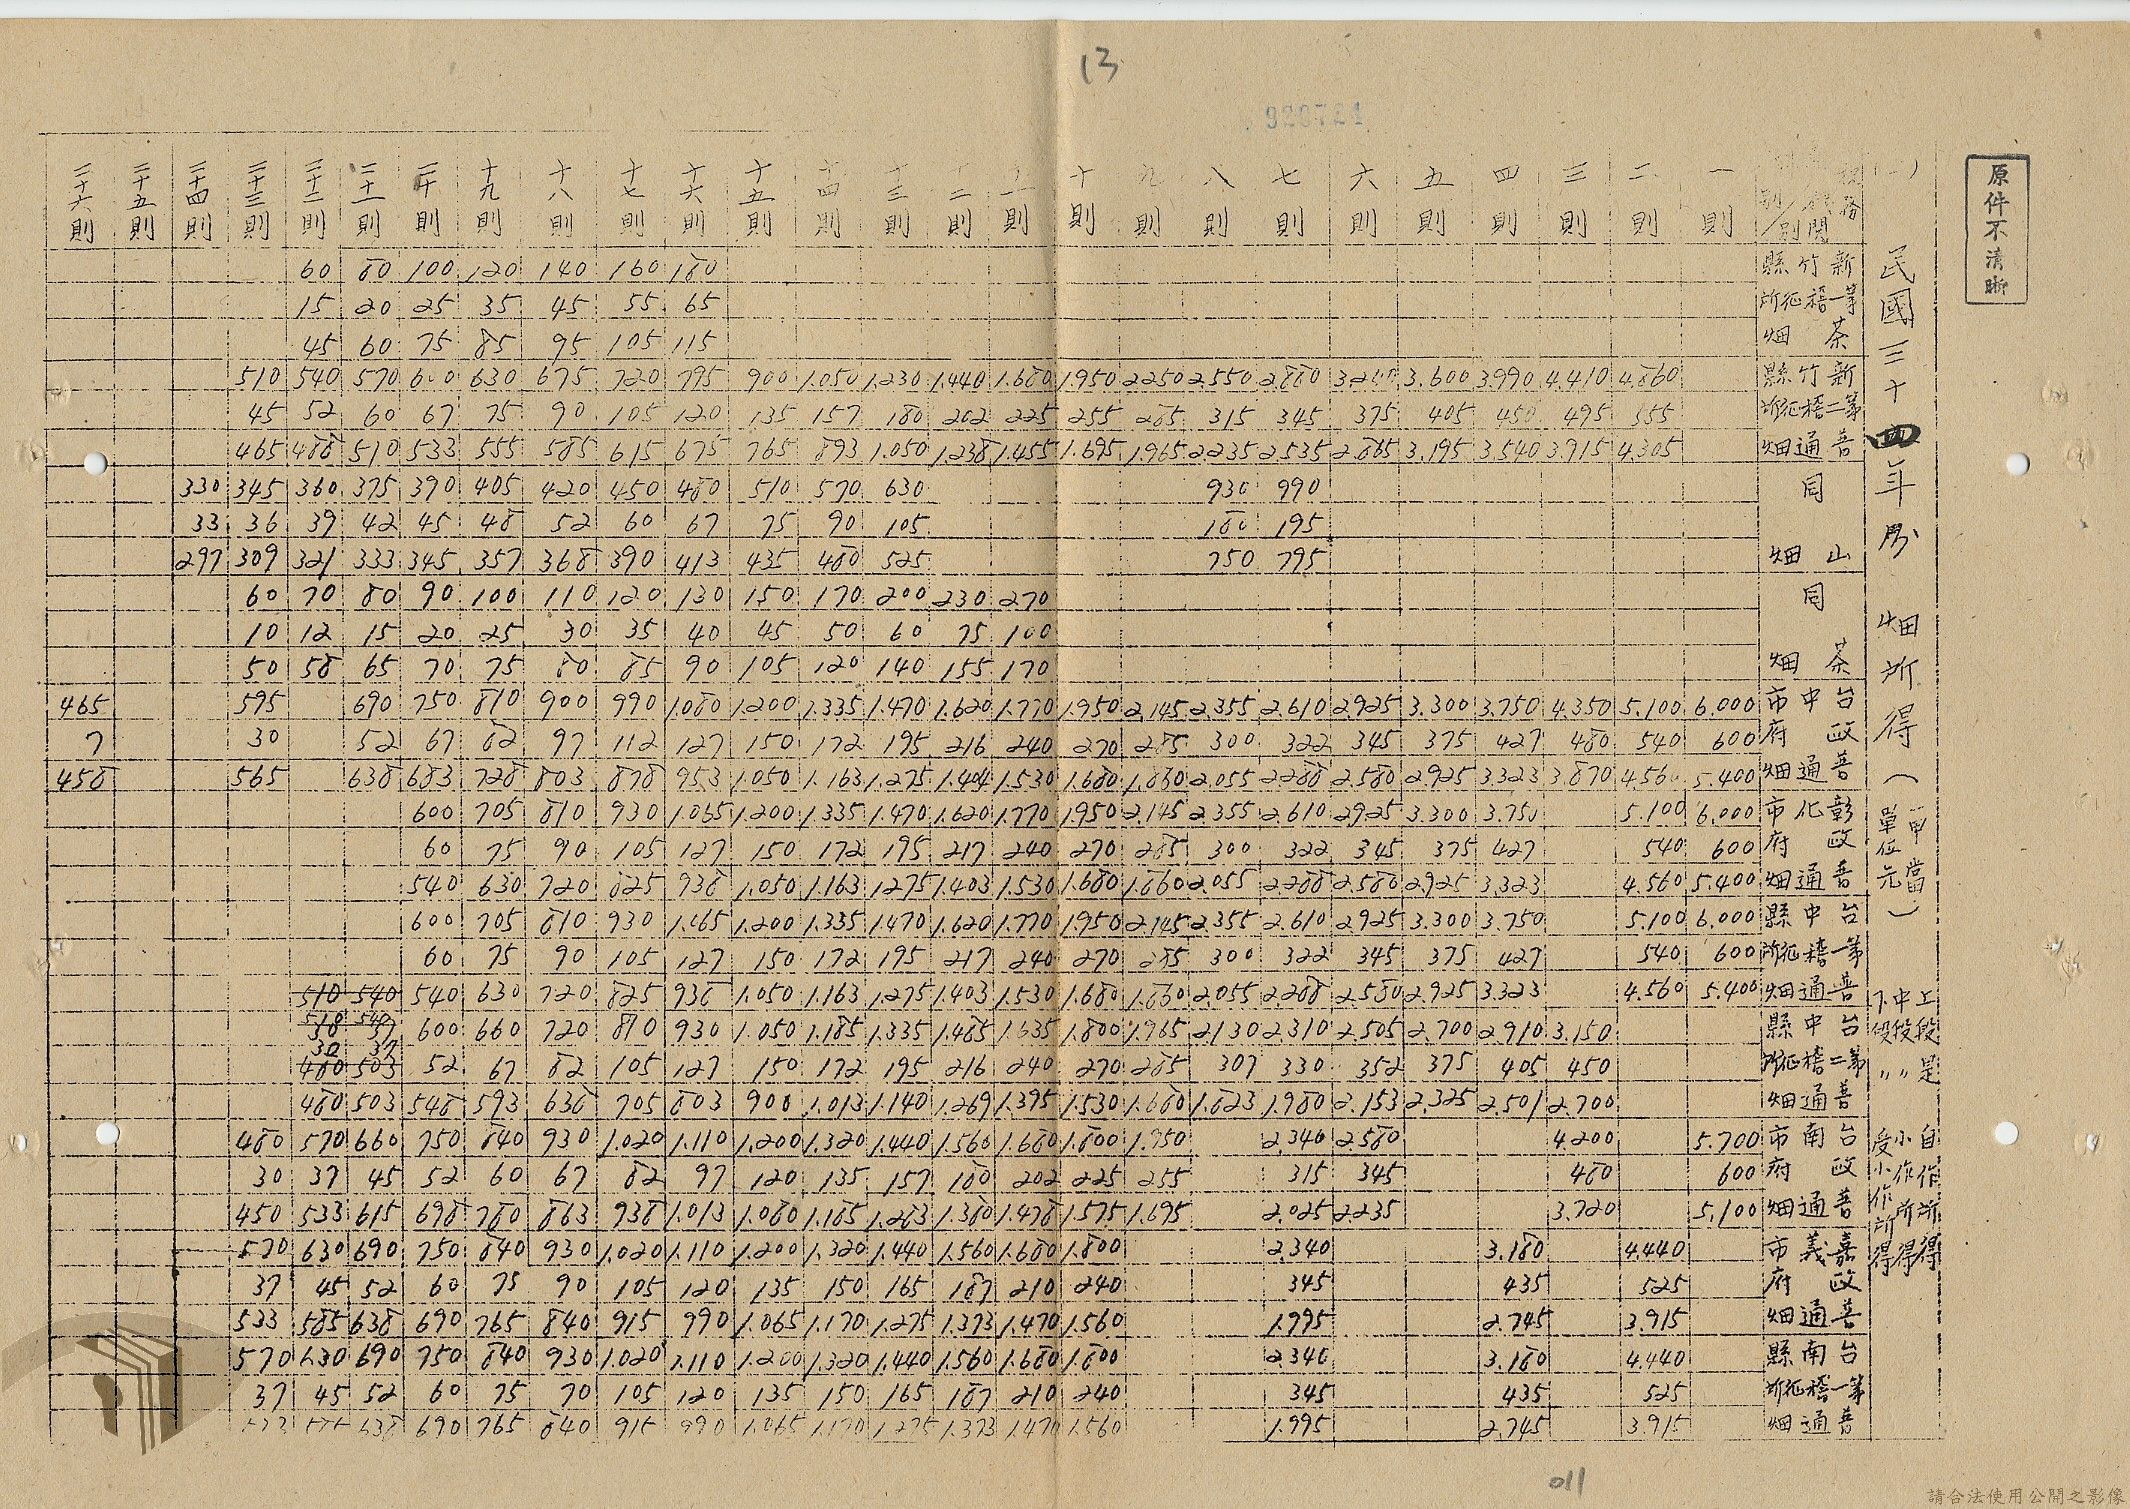 13
920724
原件不清晰
(一)民國三十四年份畑所得(一甲當 單位元)
上段是自作所得
中段〃小作所得
下段〃受小作所得
稅務機関別 則別
一則 二則 三則 四則 五則 六則 七則 八則 九則 十則 十一則 十二則 十三則 十四則 十五則 十六則 十七則 十八則 十九則 二十則 二十一則 二十二則 二十三則 二十四則 二十五則 二十六則
新竹縣 180 160 140 120 100 80 60
第一稽征所 65 55 45 35 25 20 15
茶畑 115 105 95 85 75 60 45
新竹縣 4.860 4.410 3.990 3.600 2.880 2.550 2250 1.950 1.680 1.440 1.230 1.050 900 795 720 675 630 600 570 540 510
第二稽征所 555 495 450 405 375 345 315 285 255 225 202 180 157 135 120 105 90 75 67 60 52 45
普通畑 4.305 3.915 3.540 3.195 2.865 2.535 2.235 1.965 1.695 1.455 1.238 1.050 893 765 675 615 585 555 533 510 488 465
同 990 930 630 570 510 480 450 420 405 390 375 360 345 330
195 180 105 90 75 67 60 52 48 45 42 39 36 33
山畑 795 750 525 480 435 413 390 368 357 345 333 321 309 297
同 270 230 200 170 150 130 120 110 100 90 80 70 60
100 75 60 50 45 40 35 30 25 20 15 12 10
茶畑 170 155 140 120 105 90 85 80 75 70 65 58 50
台中市 6.000 5.100 4.350 3.750 3.300 2.925 2.610 2.355 2.145 1.950 1.770 1.620 1.470 1.335 1.200 1.080 990 900 810 750 690 595 465
政府 600 540 480 427 375 345 322 300 285 270 240 216 195 172 150 127 112 97 82 67 52 30 7
普通畑 5.400 4.560 3.870 3.323 2.925 2.580 2.288 2.055 1.860 1.680 1.530 1.404 1.275 1.163 1.050 953 878 803 728 683 638 565 458
彰化市 6.000 5.100 3.750 3.300 2.925 2.610 2.355 2.145 1.950 1.770 1.620 1.470 1.335 1.200 1.065 930 810 705 600
政府 600 540 427 375 345 322 300 285 270 240 217 195 172 150 127 105 90 75 60
普通畑 5.400 4.560 3.323 2.925 2.580 2.288 2.055 1.860 1.680 1.530 1.403 1.275 1.163 1.050 938 825 720 630 540
台中縣 6.000 5.100 3.750 3.300 2.925 2.610 2.355 2.145 1.950 1.770 1.620 1.470 1.335 1.200 1.065 930 810 705 600
第一稽征所 600 540 427 375 345 322 300 285 270 240 217 195 172 150 127 105 90 75 60
普通畑 5.400 4.560 3.323 2.925 2.580 2.288 2.055 1.860 1.680 1.530 1.403 1.275 1.163 1.050 938 825 720 630 540 540 510
台中縣 3.150 2.910 2.700 2.505 2.310 2.130 1.965 1.800 1.635 1.485 1.335 1.185 1.050 930 810 720 660 600
第二稽征所 450 405 375 352 330 307 285 270 240 216 195 172 150 127 105 82 67 52 37 30
503 480
普通畑 2.700 2.501 2.325 2.153 1.980 1.823 1.680 1.530 1.395 1.269 1.140 1.013 900 803 705 638 593 548 503 480
台南市 5.700 4.200 2.580 2.340 1.950 1.800 1.680 1.560 1.440 1.320 1.200 1.110 1.020 930 840 750 660 570 480
政府 600 480 345 315 255 225 202 180 157 135 120 97 82 67 60 52 45 37 30
普通畑 5.100 3.720 2.235 2.025 1.695 1.575 1.478 1.380 1.283 1.185 1.080 1.013 938 863 780 698 615 533 450
嘉義市 4.440 3.180 2.340 1.800 1.680 1.560 1.440 1.320 1.200 1.110 1.020 930 840 750 690 630 570
政府 525 435 345 240 210 187 165 150 135 120 105 90 75 60 52 45 37
普通畑 3.915 2.745 1.995 1.560 1.470 1.373 1.275 1.170 1.065 990 915 840 765 690 638 585 533
台南縣 4.440 3.180 2.340 1.800 1.680 1.560 1.440 1.320 1.200 1.110 1.020 930 840 750 690 630 570
第一稽征所 525 435 345 240 210 187 165 150 135 120 105 70 75 60 52 45 37
普通畑 3.915 2.745 1.995 1.560 1.470 1.373 1.275 1.170 1.065 990 915 840 765 690 638
011
請合法使用公開之影像